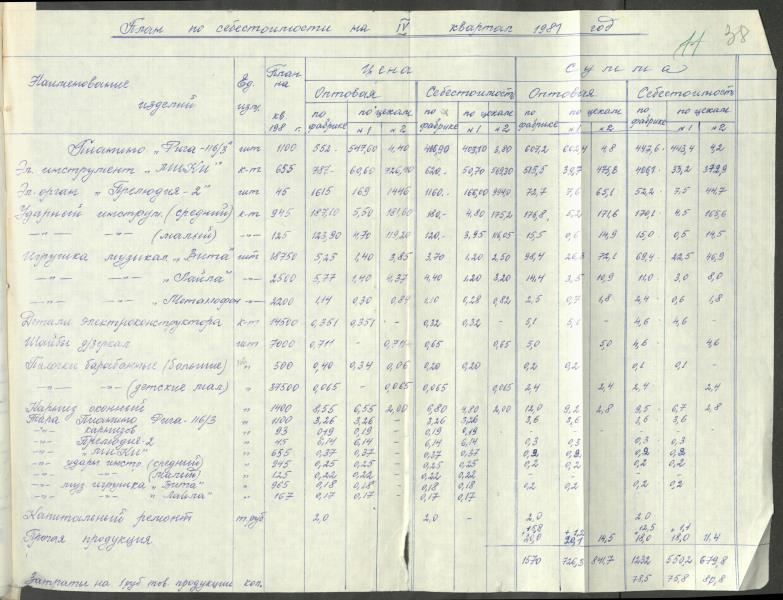 План по себестоимости на IV квартал 1981 год
11 38
Наименование изделий Ед. изм. План на кв. 198 г. Цена Сумма
Оптовая Себестоимость Оптовая Себестоимость
по фабрике по цехам по фабрике по цехам по фабрике по цехам по фабрике по цехам
№1 №2 №1 №2 №1 №2 №1 №2
Пианино „Рига-116/3" шт 1100 552- 547,60 4,40 3,80 607,2 602,4 4,8 447,6 443,4 4,2
Эл. инструмент „МИКИ" к-т 655 787- 60,60 726,40 620,- 50,70 569,30 515,5 39,7 475,8 33,2 372,9
Эл. орган „Прелюдия-2" шт 45 1615 169 1446 1160,- 166,00 72,7 7,6 65,1 52,2 7,5 44,7
Ударный инструм. (средний) к-т 945 187,10 5,50 181,60 180,- 4,80 175,2 176,8 5,2 171,6 170,1 4,5 165,6
-"- -"- (малый) -"- 125 123,90 4,70 119,20 120,- 3,95 116,05 15,5 0,6 14,9 15,0 0,5 14,5
Игрушка музыкал „Вита" шт 18750 5,25 1,40 3,85 3,70 1,20 2,50 98,4 26,3 72,1 69,4 22,5 46,9
-"- -"- „Лайла" -"- 2500 5,77 1,40 4,37 4,40 1,20 3,20 14,4 3,5 10,9 11,0 3,0 8,0
-"- -"- „Металофон -"- 2200 1,14 0,30 0,84 1,10 0,28 0,82 2,5 0,7 1,8 2,4 0,6 1,8
Детали электроконструктора к-т 14500 0,351 0,351 - 0,32 0,32 - 5,1 5,1 - 4,6 4,6 -
Шайбы д/зеркал шт 7000 0,711 - 0,711 0,65 - 0,65 5,0 - 5,0 4,6 - 4,6
Палочки барабанные (большие) „ 500 0,40 0,34 0,06 0,20 0,20 - 0,2 0,2 - 0,1 0,1 -
-"- -"- (детские мал) „ 37500 0,065 - 0,065 0,065 - 0,065 2,4 - 2,4 2,4 - 2,4
Карниз оконный „ 1400 8,55 6,55 2,00 6,80 4,80 2,00 12,0 9,2 2,8 9,5 6,7 2,8
Тара Пианино Рига-116/3 „ 1100 3,26 3,26 - 3,26 3,26 - 3,6 3,6 - 3,6 3,6
-"- карнизов „ 93 0,19 0,19 - 0,19 0,19 -
-"- Прелюдия-2 „ 45 6,14 6,14 - 6,14 6,14 - 0,3 0,3 - 0,3 0,3
-"- „МИКИ" „ 655 0,37 0,37 - 0,37 0,37 - 0,2 0,2 - 0,2 0,2
-"- ударн инстр (средний) „ 945 0,25 0,25 - 0,25 0,25 - 0,2 0,2 - 0,2 0,2
-"- -"- (малый) „ 125 0,22 0,22 - 0,22 0,22
-"- муз игрушка „Вита" „ 965 0,18 0,18 - 0,18 0,18 - 0,2 0,2 - 0,2 0,2
-"- -"- „Лайла" „ 167 0,17 0,17 - 0,17 0,17 -
Капитальный ремонт т.руб 2,0 2,0 - 2,0 2,0
+15,8 +1,2 +12,5 +1,1
Прочая продукция 20,0 20,1 14,5 18,0 18,0 11,4
1570 726,3 841,7 1232 550,2 679,8
Затраты на 1 руб тов. продукции коп. 78,5 75,8 80,8